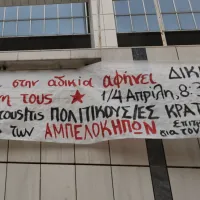 στην αδικία αφήνει ΔΙΚ
τους ★ 1/4 Απρίλη, 8:3
τους/τις ΠΟΛΙΤΙΚΟΥΣ/ΕΣ ΚΡΑΤ
των ΑΜΠΕΛΟΚΗΠΩΝ
για τον